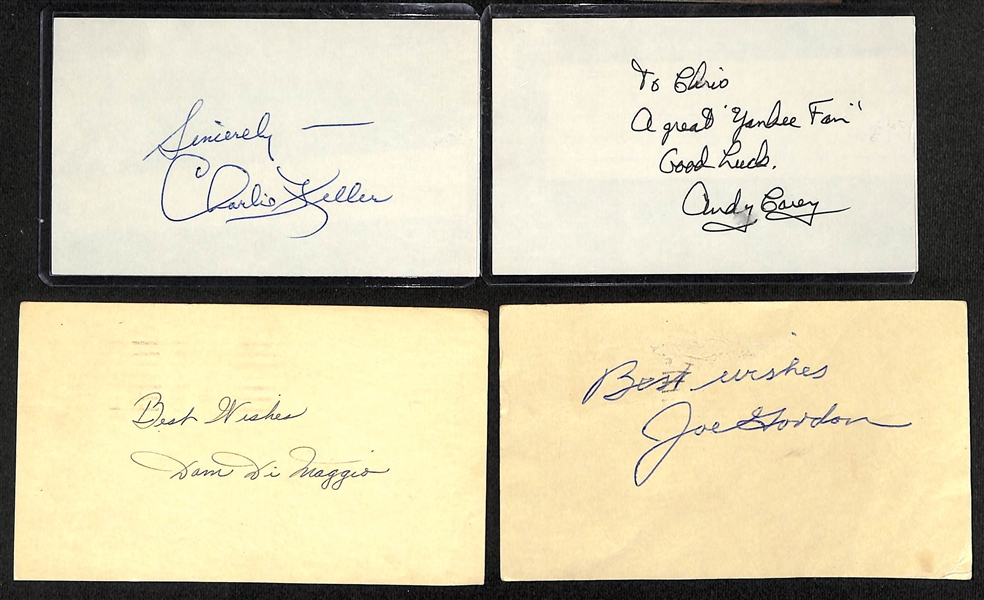 Sincerely —
Charlie Keller
To Chris
A great "Yankee Fan"
Good Luck.
Andy Carey
Best Wishes
Dom Di Maggio
Best wishes
Joe Gordon